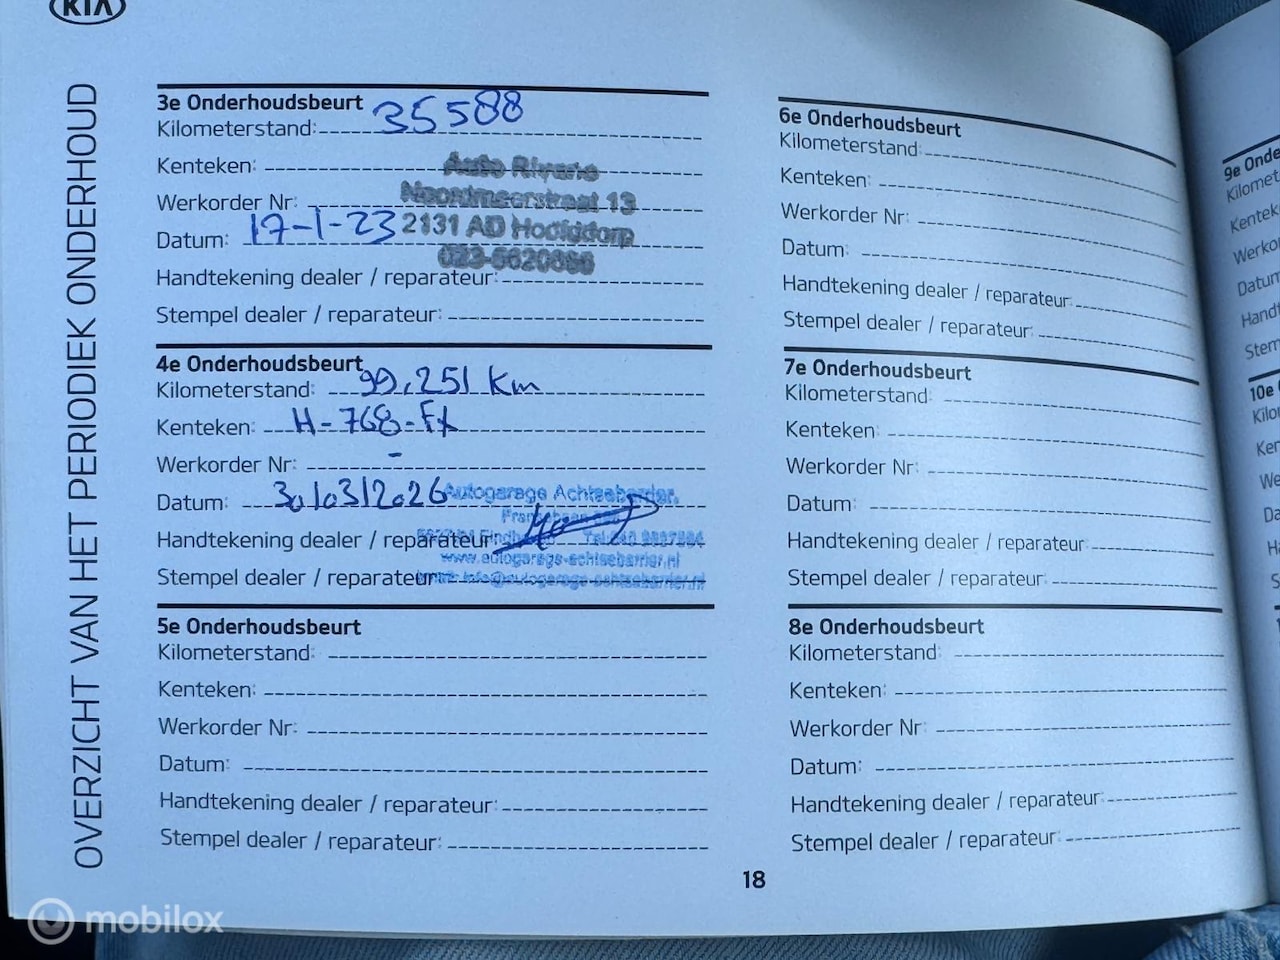 KIA
OVERZICHT VAN HET PERIODIEK ONDERHOUD
3e Onderhoudsbeurt
Kilometerstand: 35588
Kenteken:
Werkorder Nr:
Datum: 17-1-23
Handtekening dealer / reparateur:
Stempel dealer / reparateur:
Auto Riverio
Noordmeerstraat 13
2131 AD Hoofddorp
4e Onderhoudsbeurt
Kilometerstand: 99.251 Km
Kenteken: H-768-FX
Werkorder Nr: -
Datum: 30/03/2026
Handtekening dealer / reparateur:
Stempel dealer / reparateur:
Autogarage Achtsebarrier
www.autogarage-achtsebarrier.nl
info@autogarage-achtsebarrier.nl
5e Onderhoudsbeurt
Kilometerstand:
Kenteken:
Werkorder Nr:
Datum:
Handtekening dealer / reparateur:
Stempel dealer / reparateur:
6e Onderhoudsbeurt
Kilometerstand:
Kenteken:
Werkorder Nr:
Datum:
Handtekening dealer / reparateur:
Stempel dealer / reparateur:
7e Onderhoudsbeurt
Kilometerstand:
Kenteken:
Werkorder Nr:
Datum:
Handtekening dealer / reparateur:
Stempel dealer / reparateur:
8e Onderhoudsbeurt
Kilometerstand:
Kenteken:
Werkorder Nr:
Datum:
Handtekening dealer / reparateur:
Stempel dealer / reparateur:
18
9e Onde
Kilomet
Kentek
Werko
Datum
Handt
Stem
10e
Kilo
Ken
We
Da
Ha
S
mobilox